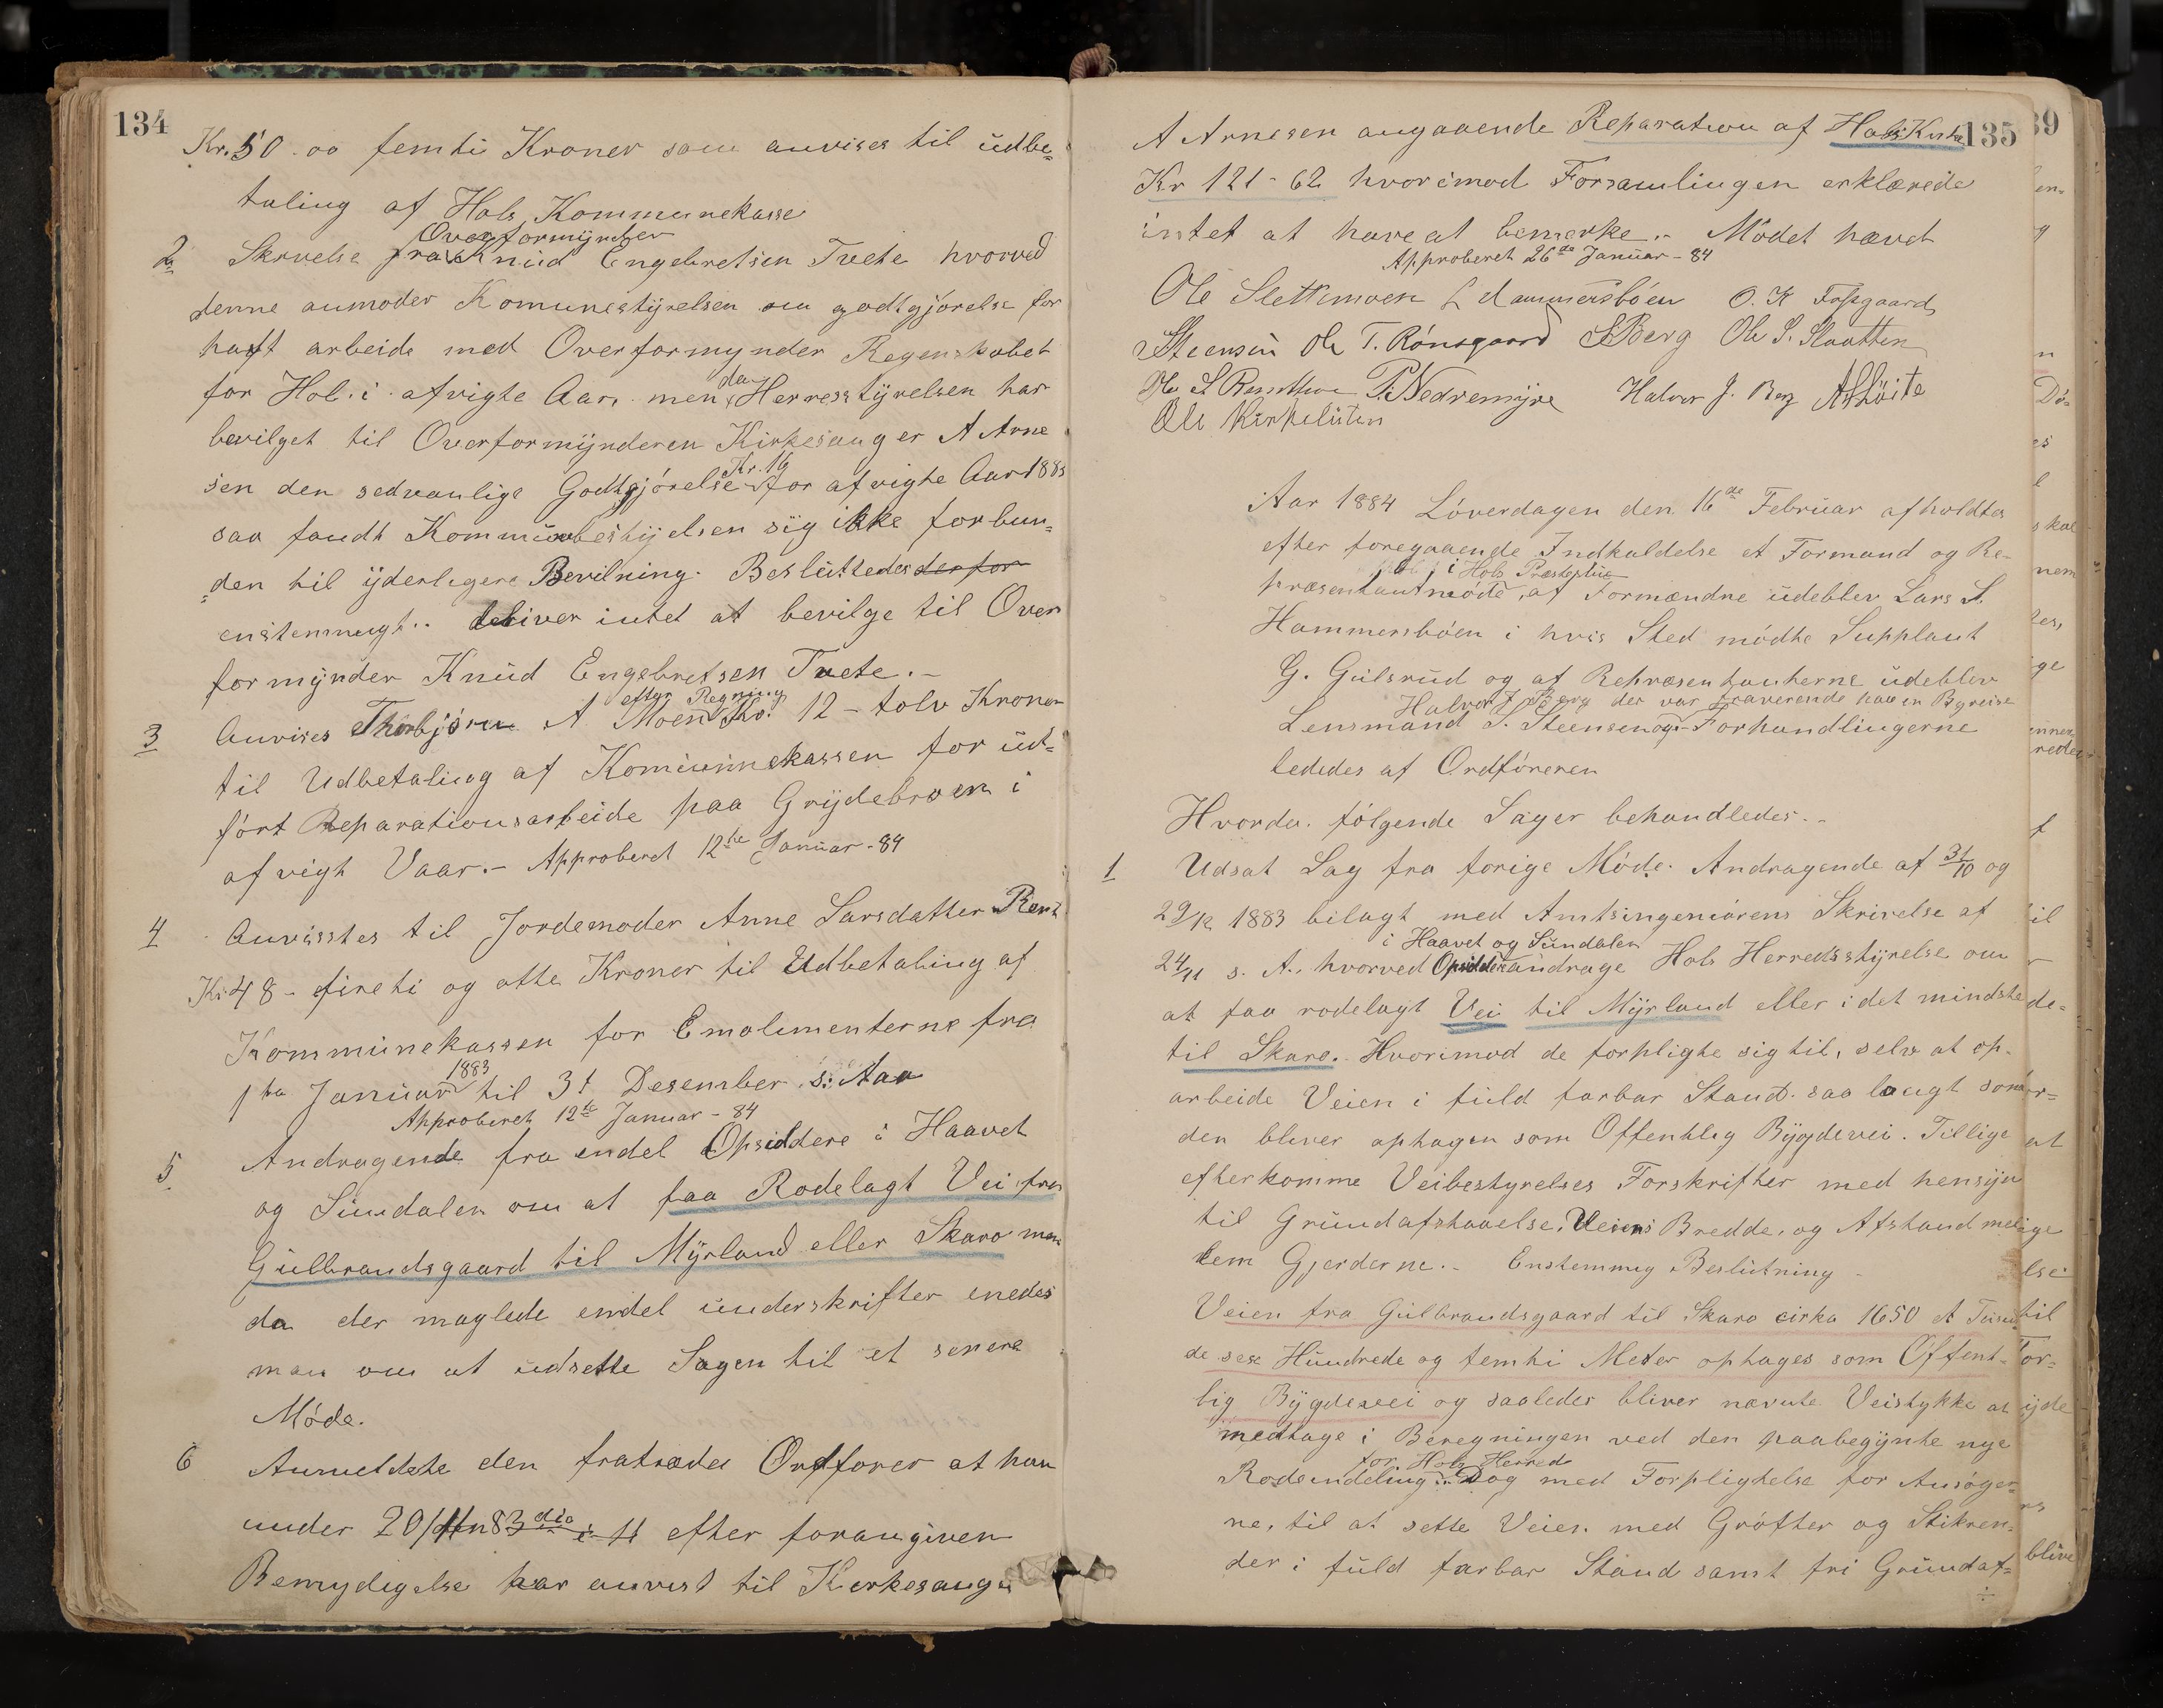 134
Kr. 50.00 femti Kroner som anvises til udbe=
taling af Hols Kommunekasse
Overformynder
2 Skrivelse fra Knud Engebretsen Tvete hvorved
denne anmoder Komunestyrelsen om godtgjørelse for
haft arbeide med Overformynder Regenskabet
for Hol i afvigte Aar, men da Herresstyrelsen har
bevilget til Overformynderen Kirkesanger A Arne
sen den sedvanlige Godtgjørelse Kr. 16 for afvigte Aar 1883
saa fandt Kommunebestyelsen sig ikke forbun=
den til yderligere Bevilning. Besluttedes derfor
enstemmigt. bliver intet at bevilge til Over
formynder Knud Engebretsen Tvete.-
efter Regning
3 Anvises Thorbjørn A. Moen Kr. 12 - tolv Kroner
til Udbetaling af Komunnekassen for ud=
ført Reparationsarbeide paa Grydebroen i
afvigt Vaar.- Approberet 12te Januar - 84
4 Anvisstes til Jordemoder Anne Larsdatter
Kr 48 - fireti og otte Kroner til Udbetaling af
Kommunekassen for Emolumenterne fra
1ste Januar 1883 til 31 Desember s: Aar
Approberet 12te Januar - 84
5 Andragende fra endel Opsiddere i Haavet
og Sundalen om at faa Rodelagt Vei fra
Gulbrandsgaard til Myrland eller Skaro men
da der maglede endel underskrifter enedes
man om at udsette Sagen til et senere
Møde.
6 Anmeldte den fratrædes Ordfører at han
under 20/11 83 efter forangiven
Bemydigelse har anvist til Kirkesanger
135
A Arnesen angaaende Reparation af Hols Kirke
Kr 121-62 hvorimod Forsamlingen erklærede
intet at have at bemerke.- Mødet hævet
Approberet 26de Januar - 84
Ole Slettemoen L Hammersbøen O. K Fossgaard
Steensen Ole T. Rønsgaard SBerg Ole S. Slaatten
P. Nedremyre Halvor J. Berg
Ole Kirkeluten
Aar 1884 Løverdagen den 16de Februar afholdtes
efter foregaaende Indkaldelse et Formand og Re-
i Hols Præsteplus
præsentantmøde, af Formændne udeblev Lars S.
Hammersbøen i hvis Sted mødte Supplant
G. Gulsrud og af Repræsentanterne udeblev
Halvor J Berg der var fraverende paa en Byreise
Lensmand S. Steensen og Forhandlingerne
lededes af Ordføreren
Hvorda. følgende Sager behandledes.-
1 Udsat Sag fra forige Møde. Andragende af 31/10 og
29/12 1883 bilagt med Amtsingeniørens Skrivelse af
i Haavet og Sundalen
24/11 s. A., hvorved Opsiddere andrage Hols Herredsstyrelse om
at faa rodelagt Vei til Myrland eller i det mindste
til Skaro. Hvorimod de forpligte sig til, selv at op-
arbeide Veien i fuld farbar Stand. saa langt som
den bliver optagen som Offentlig Bygdevei. Tillige
efterkomme Veibestyrelses Forskrifter med hensyn
til Grundafstaaelse, Veiens Bredde, og Afstand mel
lem Gjerderne.- Enstemmig Beslutning -
Veien fra Gulbrandsgaard til Skaro cirka 1650 Et Tusin
de sex Hundrede og femti Meter optages som Offent-
lig Bygdevei og saaledes bliver nævnte Veistykke at
medtage i Beregningen ved den paabegynte nye
for Hols Herred
Rodeinddeling. Dog med Forpligtelse for Ansøger-
ne, til at sette Veien med Grøfter og Stikren-
der i fuld farbar Stand samt fri Grundaf=